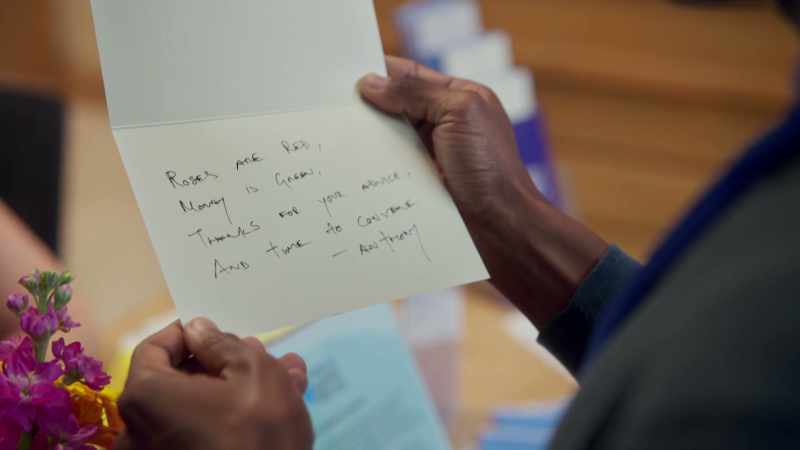 Roses are Red,
Money is Green,
Thanks for your advice,
And time to convene
— Anthony